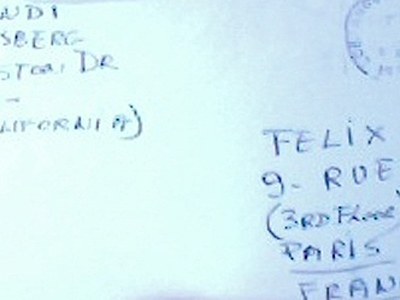 UDI
SBERG
STON DR
LIFORNIA)
FELIX
9- RUE
(3RD FLOOR)
PARIS
FRAN